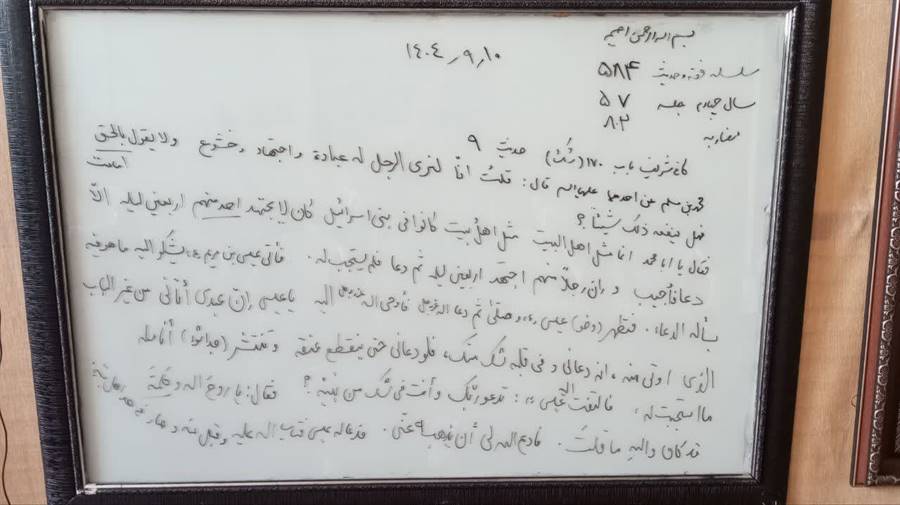 بسم الله الرحمن الرحیم
۱۴۰۴٫۹٫۱۰
سلسله فقه و حدیث ۵۸۴
سال چهارم جلسه ۵۷
۸۰۲
کافی شریف باب ۱۷۰ (شک) حدیث ۹
محمد بن مسلم عن احدهما علیهما السلام قال: قلت انّا لنری الرجل له عبادة و اجتهاد و خشوع ولا یقول بالحق
امامت
فهل ینفعه ذلک شیئاً؟
فقال یا ابا محمد انما مثل اهل البیت مثل اهل بیت کانوا فی بنی اسرائیل کان لا یجتهد احد منهم اربعین لیله الّا
دعا فأجیب و ان رجلاً منهم اجتهد اربعین لیله ثم دعا فلم یستجب له. فأتی عیسی بن مریم ع یشکو الیه ما هو فیه
یسأله الدعاء. فتطهر (وضو) عیسی ع و صلّی ثم دعا الله عزوجل فأوحی الله عزوجل الیه یا عیسی إن عبدی أتانی من غیر الباب
الذی اوتی منه، انه دعانی و فی قلبه شک منک، فلو دعانی حتی ینقطع عنقه و تنتثر أنامله
ما استجبت له. فالتفت الیه عیسی ع: تدعو ربک و أنت فی شک من نبیّه؟ فقال: یا روح الله و کلمته
قد کان والله ما قلت. فادع الله لی أن یذهب به عنّی. فدعا له عیسی فتاب الله علیه و قبل منه و صار فی حد اهل بیته